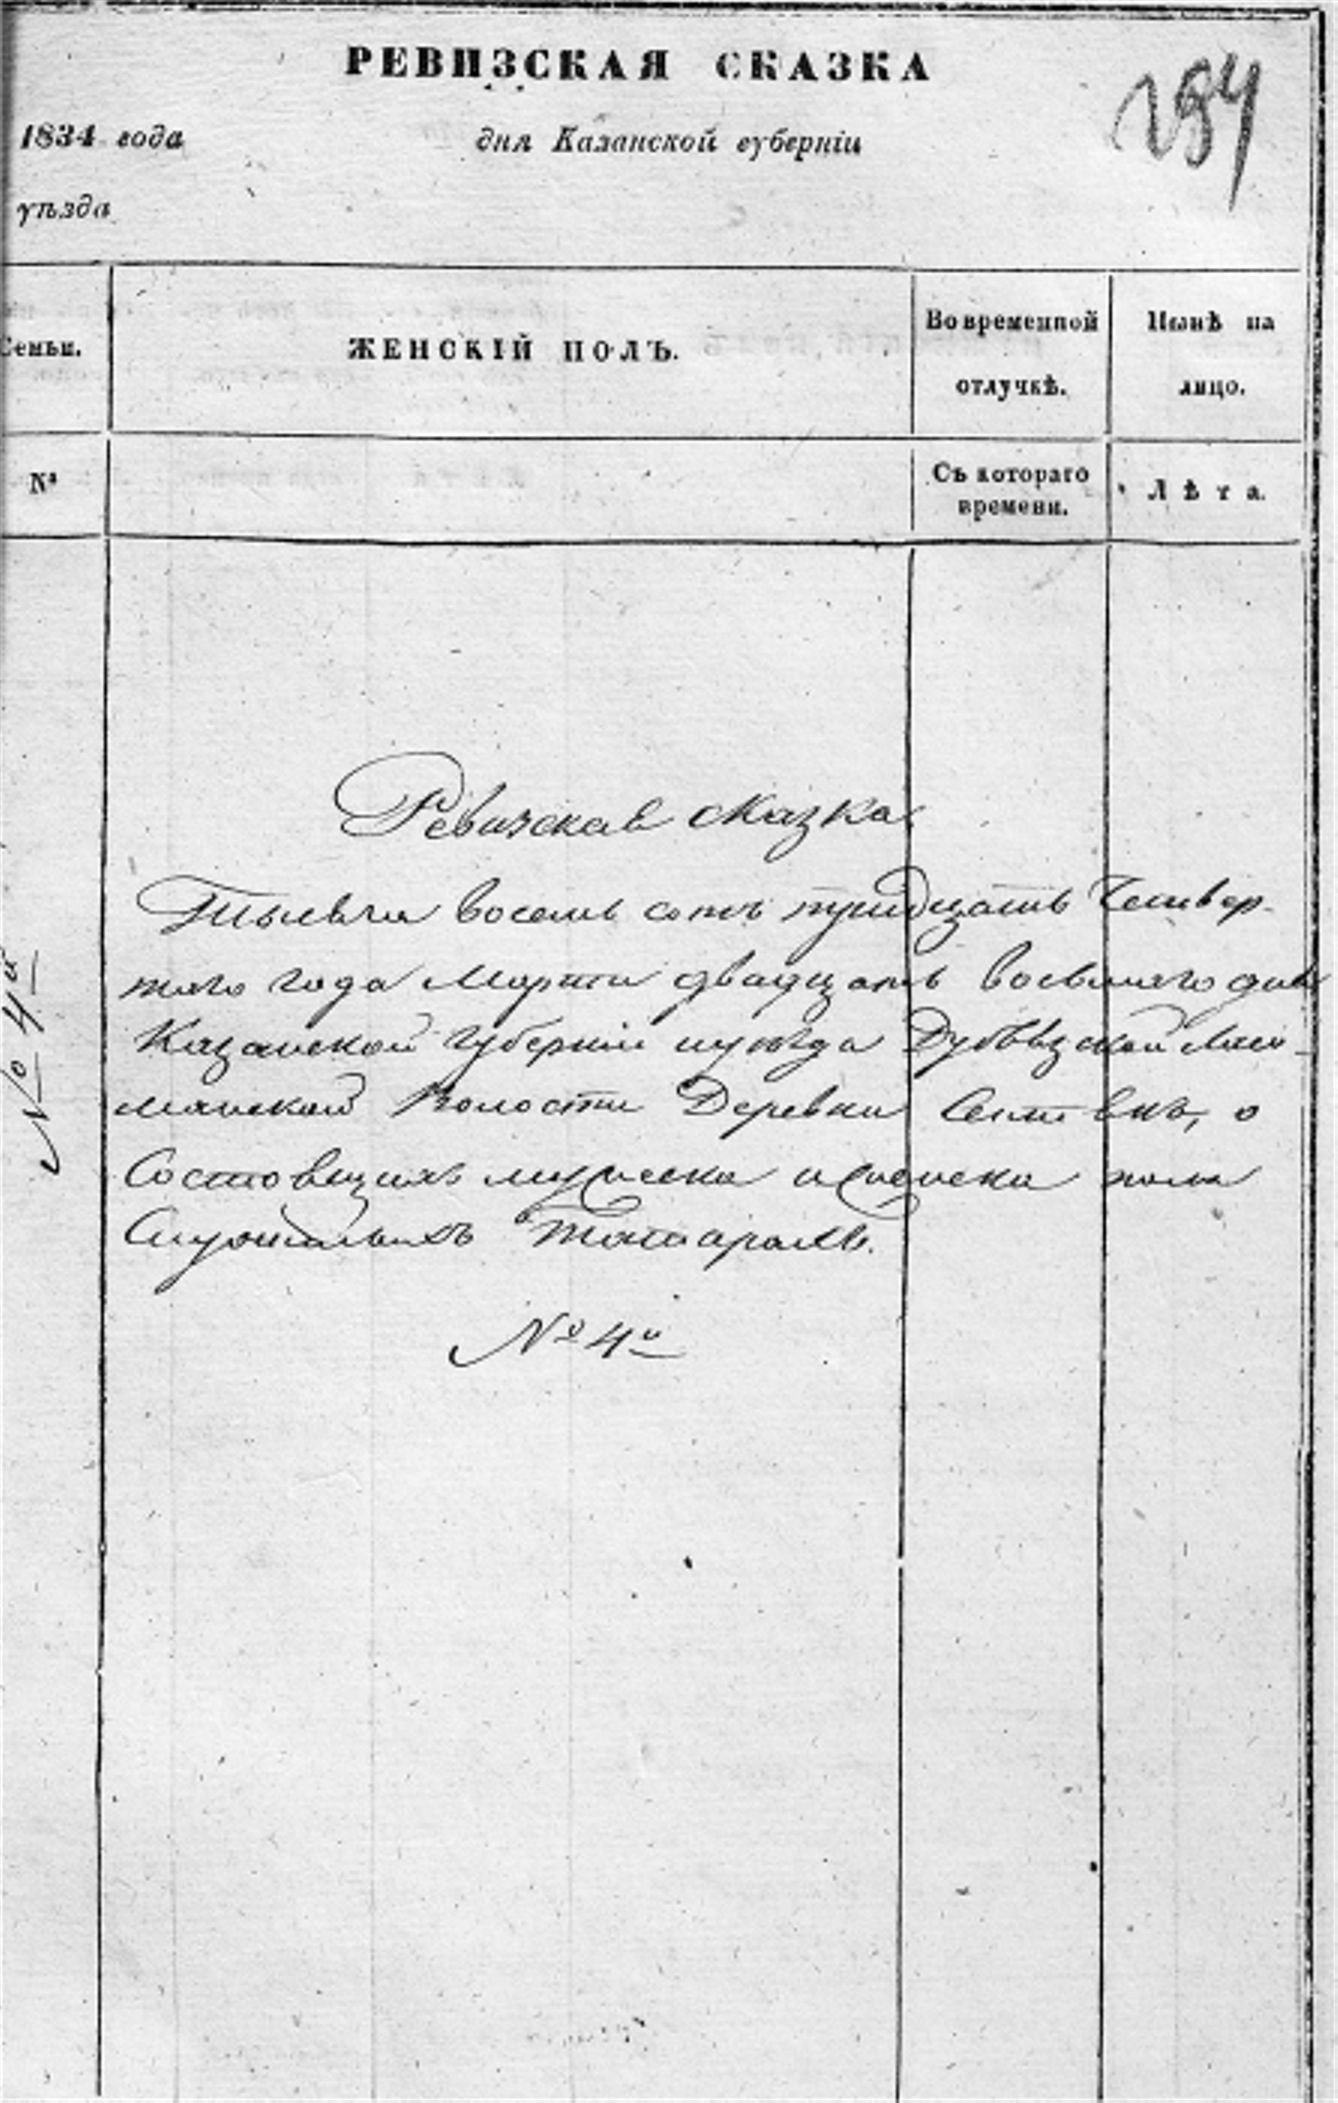 РЕВИЗСКАЯ СКАЗКА
1834 года
дня Казанской губерніи
уѣзда
Семьи.
ЖЕНСКІЙ ПОЛЪ.
Во временной
отлучкѣ.
Нынѣ на
лицо.
№
Съ котораго
времени.
Лѣта.
Ревизская сказка
Тысяча восемь сотъ тридцать Четвер-
таго года Марта двадцать восьмаго дня
Казанской Губерніи уѣзда
Волости Деревни о
Состоящихъ мужеска и женска пола
Служилыхъ Татарахъ.
№ 4й
№ 4й